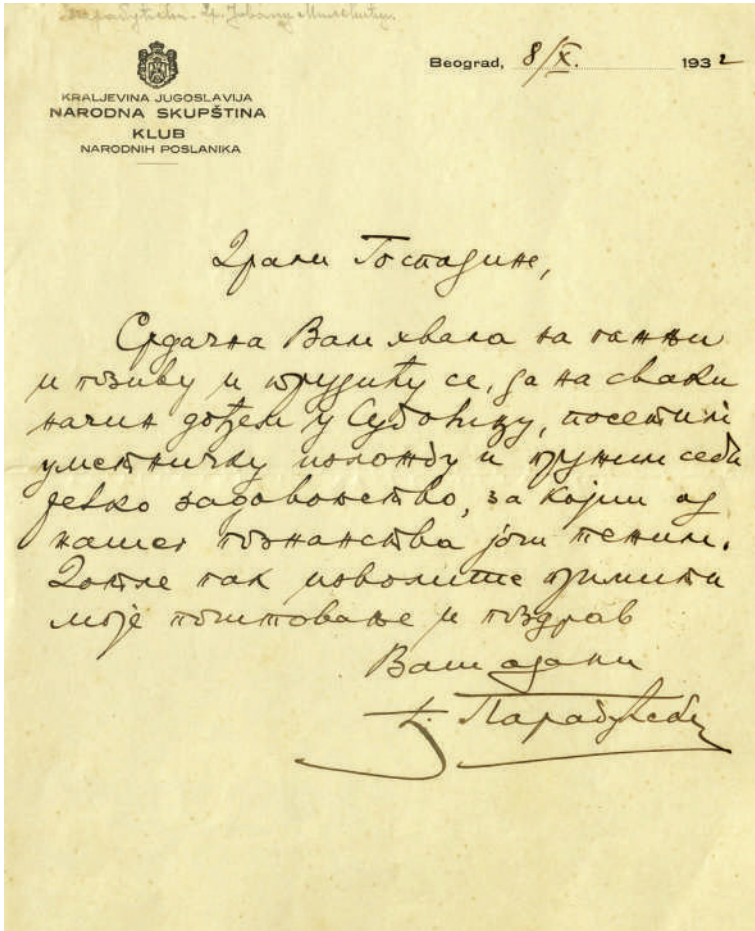 Beograd, 8/X. 1932
KRALJEVINA JUGOSLAVIJA
NARODNA SKUPŠTINA
KLUB
NARODNIH POSLANIKA
Драги Господине,
Срдачна Вам хвала на пажњи
и позиву и трудићу се, да на сваки
начин дођем у Суботицу, посетим
уметничку изложбу и пружим себи
ретко задовољство, за којим од
нашег познанства још чезним.
Дотле пак изволите примити
моје поштовање и поздрав
Ваш одани